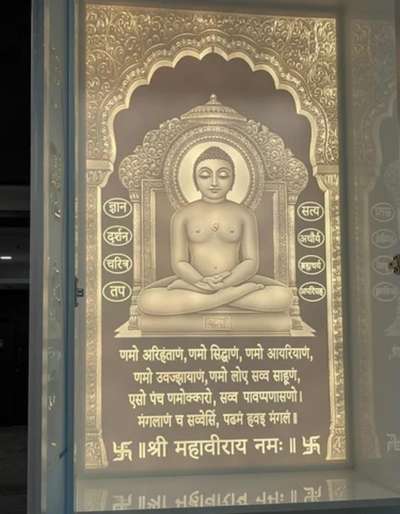 ज्ञान
दर्शन
चरित्र
तप
सत्य
अचौर्य
ब्रह्मचर्य
अपरिग्रह
णमो अरिहंताणं, णमो सिद्धाणं, णमो आयरियाणं,
णमो उवज्झायाणं, णमो लोए सव्व साहूणं,
एसो पंच णमोक्कारो, सव्व पावप्पणासणो।
मंगलाणं च सव्वेसिं, पढमं हवइ मंगलं॥
卐 ॥ श्री महावीराय नमः ॥ 卐